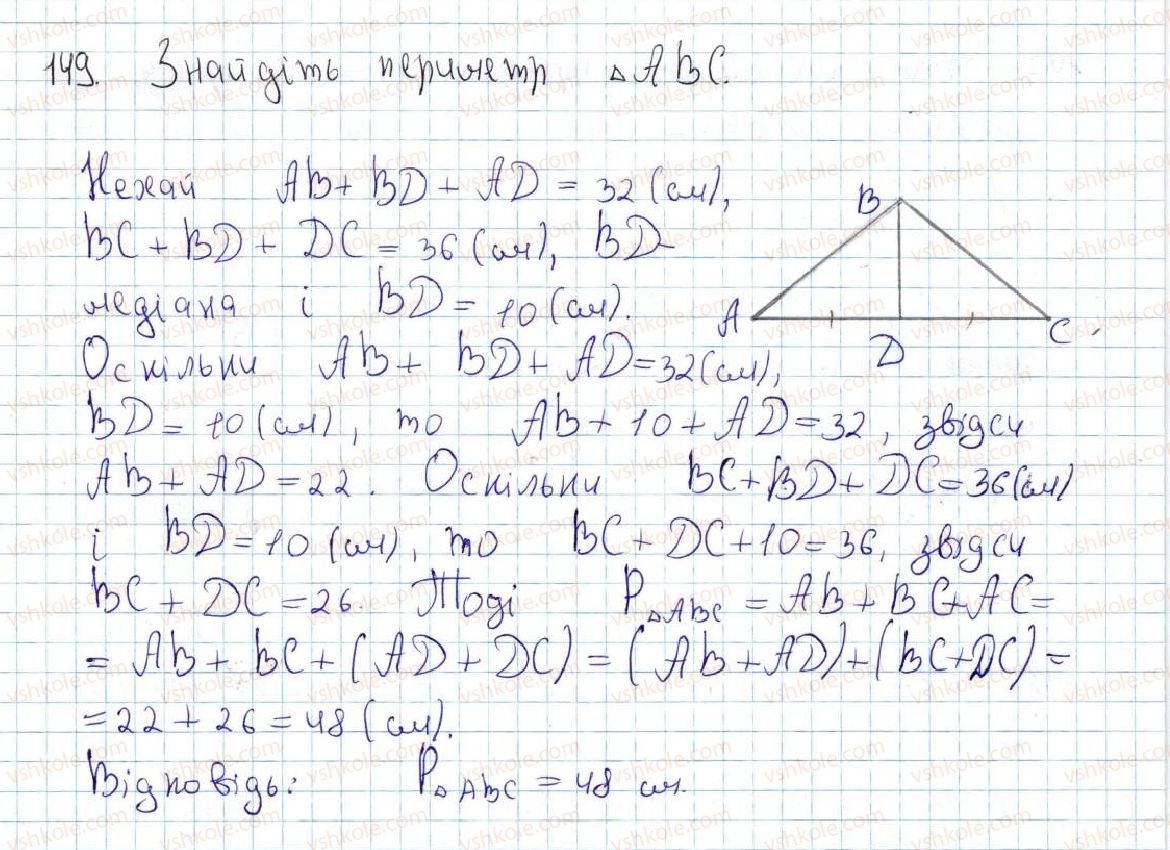 149. Знайдіть периметр △ABC.
Нехай AB + BD + AD = 32 (см),
BC + BD + DC = 36 (см), BD-
медіана і BD = 10 (см).
Оскільки AB + BD + AD = 32 (см),
BD = 10 (см), то AB + 10 + AD = 32, звідси
AB + AD = 22. Оскільки BC + BD + DC = 36 (см)
і BD = 10 (см), то BC + DC + 10 = 36, звідси
BC + DC = 26. Тоді P△ABC = AB + BC + AC =
= AB + BC + (AD + DC) = (AB + AD) + (BC + DC) =
= 22 + 26 = 48 (см).
Відповідь: P△ABC = 48 см.
B
A
D
C
vshkole.com